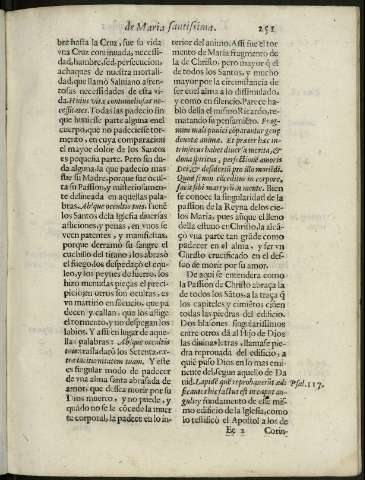 de Maria santissima.
251
bre hasta la Cruz, fue su vida
vna Cruz continuada, necessi-
dad, hambre, sed, persecucion,
achaques de nuestra mortali-
dad, que llamó Salviano afren-
tosas necessidades de esta vi-
da.
cessitates. Todas las padeciò sin
que huuiesse parte alguna en el
cuerpo, que no padeciesse tor-
mento, en cuya comparacion
el mayor dolor de los Santos
es pequeña parte. Pero sin du-
da alguna, la que padeciò mas
fue su Madre, porque fue ocul-
ta su Passion, y misteriosamen-
te delineada en aquellas pala-
bras. Ab què occultis tuis. Tienẽ
los Santos de la Iglesia diuersas
aflicciones, y penas, en vnos se
veen patentes, y manifiestas,
porque derramò su sangre el
cuchillo del tirano, los abrasò
el fuego, los despedaçò el equu-
leo, y los peynes de hierro, los
hizo menudas pieças el preci-
picio; en otros son ocultas, es
vn martirio en silencio, que pa
decen, y callan, que los aflige
el tormento, y no despegan los
labios. Y assi en lugar de aque-
llas palabras: Ab què occultis
tuis trasladarò los Setenta, ex-
tra taciturnitatem tuam. Y este
es singular modo de padecer
de vna alma santa abrasada de
amor, que dessea morir por su
Dios muerto, y no puede, y
quãdo no se le cõcede la muer
te corporal, la padece en lo in-
terior del animo. Assi fue el tor-
mento de Maria fragmento de
la de Christo, pero mayor q̃ el
de todos los Santos, y mucho
mayor por la circunstancia de
ser en el alma a lo dissimulado,
y como en silencio. Parece ha-
blò della el mismo Ricardo, re-
matando su pensamiento. Frag-
num mali pondus copiarantur gent
devota anima. Et præter hæc in-
trinsecus habet diuersa merita, &
dona spiritus, perfectissimi amoris
Dei, & desiderij pro illo moriendi.
Quod si non cõceditur in corpore,
facit sibi martyriũ in mente. Bien
se conoce la singularidad de la
passion de la Reyna de los cie-
los Maria, pues aunque el lleno
della estuuo en Christo, la alcã-
çò vna parte tan grãde como
padecer en el alma, y ser vn
Christo crucificado en el des-
seo de morir por su amor.
De aqui se entenderà como
la Passion de Christo abraça la
de todos los Sãtos, a la traça q̃
los capiteles y cimiẽtos ciñen
todas las piedras del edificio.
Dos blasones singularissimos
entre otros dà al Hijo de Dios
las diuinas letras, llamase pie-
dra reprouada del edificio, a
quiẽ puso Dios en lo mas emi-
nente del segun aquello de Da
uid. Lapidẽ quẽ reprobauerũt ædi
ficantes hic factus est in caput an-
guli; y fundamento de este mis-
mo edificio de la Iglesia, como
lo testificò el Apostol a los de
Psal. 117.
Ee 2
Corin-